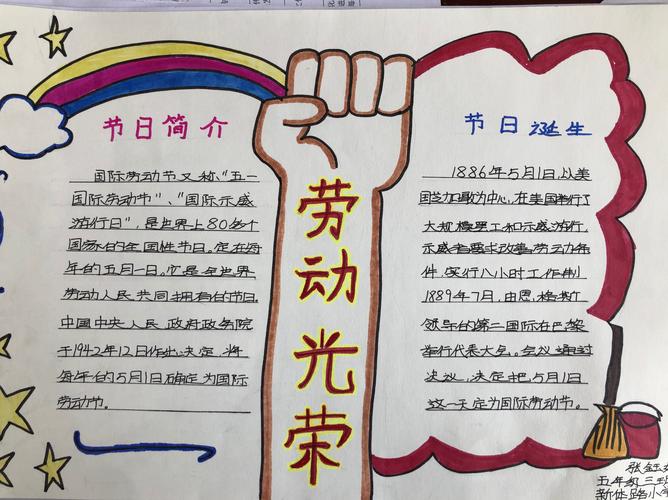 节日简介
国际劳动节又称“五一
国际劳动节”、“国际示威
游行日”，是世界上80多个
国家的全国性节日。定在每
年的五月一日。它是全世界
劳动人民共同拥有的节日。
中国中央人民政府政务院
于1942年12日作出决定，将
每年的5月1日确定为国际
劳动节。
劳动光荣
节日诞生
1886年5月1日，以美
国芝加哥为中心，在美国举行了
大规模罢工和示威游行，
示威者要求改善劳动条
件，实行八小时工作制
1889年7月，由恩格斯
领导的第二国际在巴黎
举行代表大会。会议通过
决议，决定把5月1日
这一天定为国际劳动节。
张钰
五年级三
新体路小